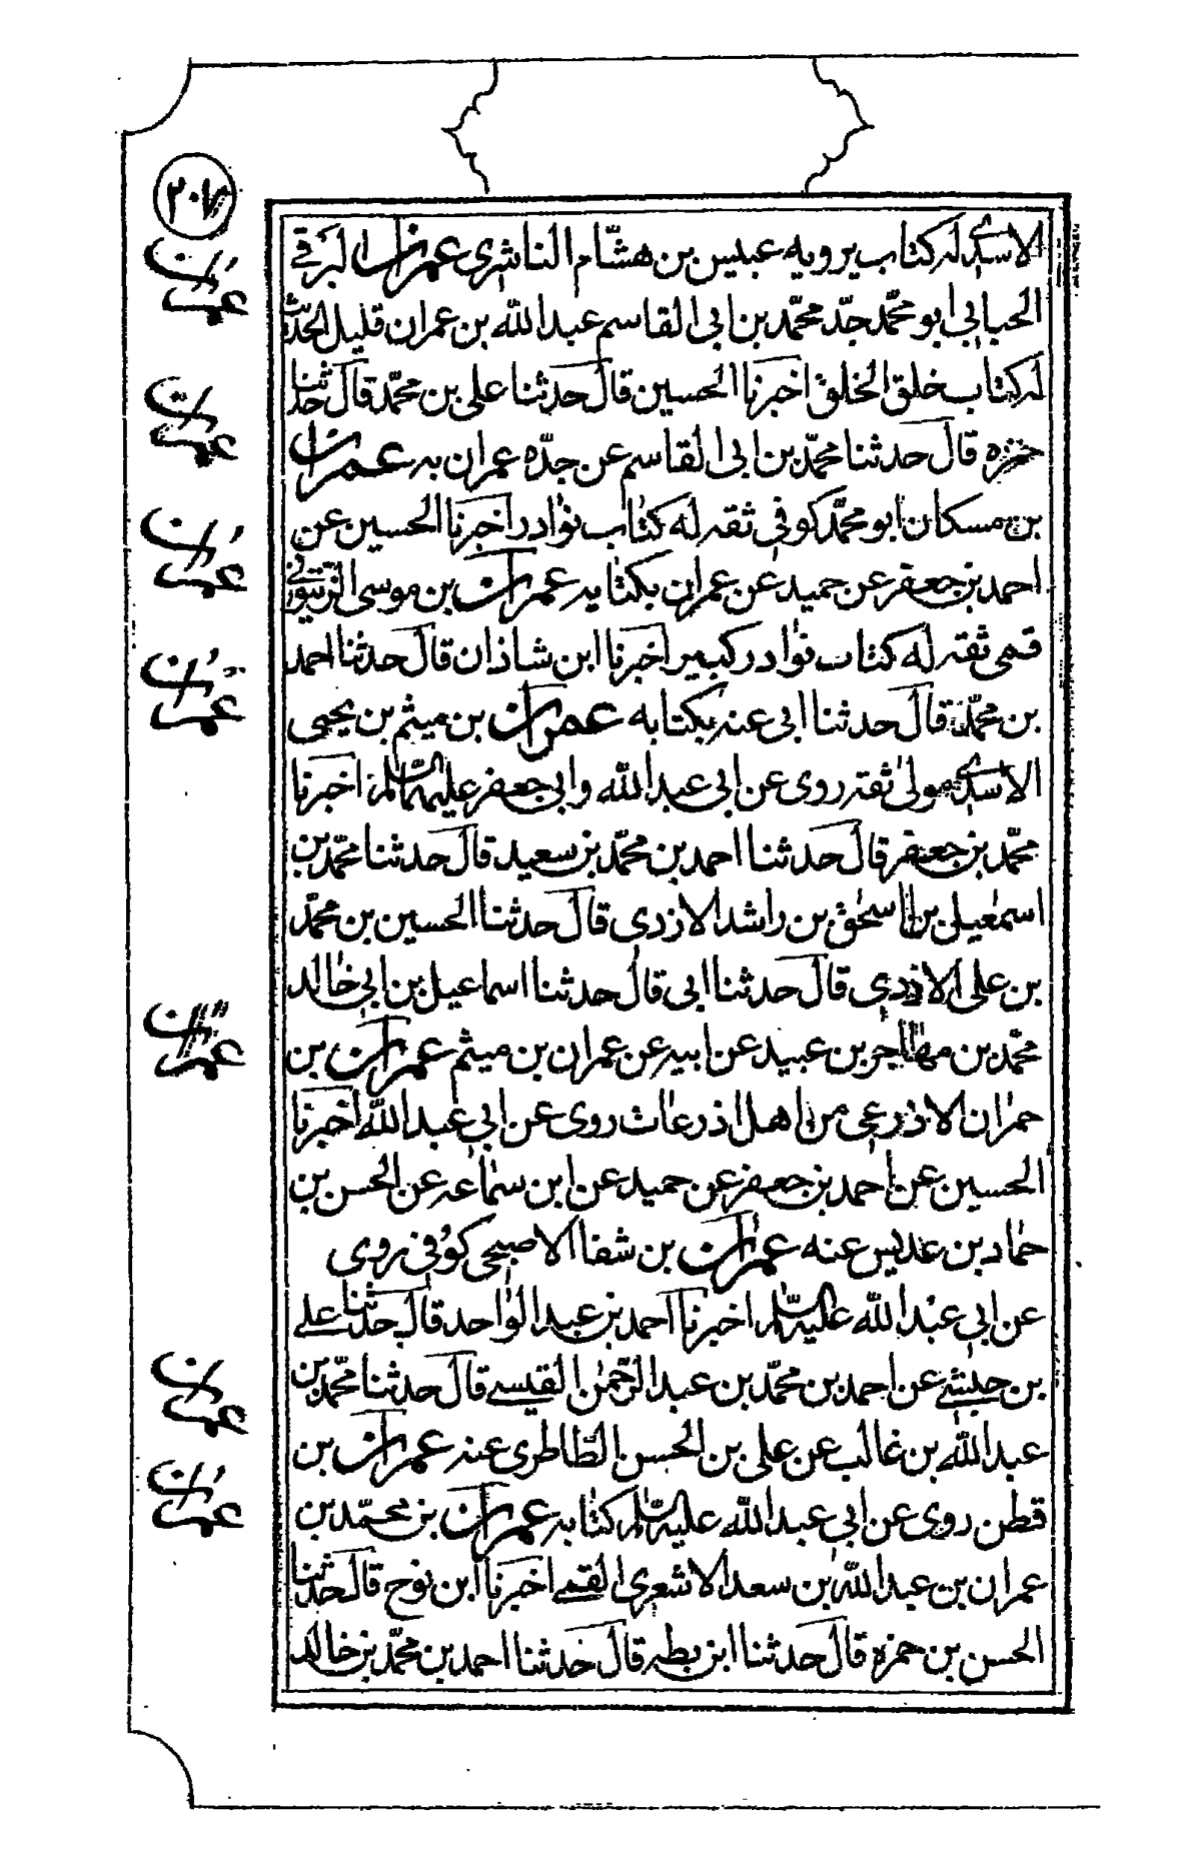 ٢٠٧
الاسدي له كتاب يرويه عبيس بن هشّام الناشري عمران البرقي
الجبابي ابو محمّد جدّ محمّد بن ابي القاسم عبدالله بن عمران قليل الحديث
له كتاب خلق الخلق اخبرنا الحسين قال حدثنا علي بن محمّد قال حدثنا
حمزه قال حدثنا محمّد بن ابي القاسم عن جدّه عمران به عمران
بن مسكان ابو محمّد كوفي ثقه له كتاب نوادر اخبرنا الحسين عن
احمد بن جعفر عن حميد عن عمران بكتابه عمران بن موسى الزيتوني
قمي ثقه له كتاب نوادر كبير اخبرنا ابن شاذان قال حدثنا احمد
بن محمّد قال حدثنا ابي عنه بكتابه عمران بن ميثم بن يحيى
الاسدي مولى ثقه روى عن ابي عبدالله وابي جعفر عليهما السّلم اخبرنا
محمّد بن جعفر قال حدثنا احمد بن محمّد بن سعيد قال حدثنا محمّد بن
اسمعيل بن اسحق بن راشد الازدي قال حدثنا الحسين بن محمّد
بن علي الازدي قال حدثنا ابي قال حدثنا اسماعيل بن ابي خالد
محمّد بن مهاجر بن عبيد عن ابيه عن عمران بن ميثم عمران بن
حمران الاذرعي من اهل اذرعات روى عن ابي عبدالله اخبرنا
الحسين عن احمد بن جعفر عن حميد عن ابن سماعه عن الحسن بن
حماد بن عديس عنه عمران بن شفا الاصبحي كوفي روى
عن ابي عبدالله عليه السّلم اخبرنا احمد بن عبدالواحد قال حدثنا علي
بن حبشي عن احمد بن محمّد بن عبدالرّحمن القيسي قال حدثنا محمّد بن
عبدالله بن غالب عن علي بن الحسن الطّاطري عنه عمران بن
قطن روى عن ابي عبدالله عليه السّلم كتابه عمران بن محمّد بن
عمران بن عبدالله بن سعد الاشعري القمي اخبرنا ابن نوح قال حدثنا
الحسن بن حمزه قال حدثنا ابن بطه قال حدثنا احمد بن محمّد بن خالد
عمران
عمران
عمران
عمران
عمران
عمران
عمران